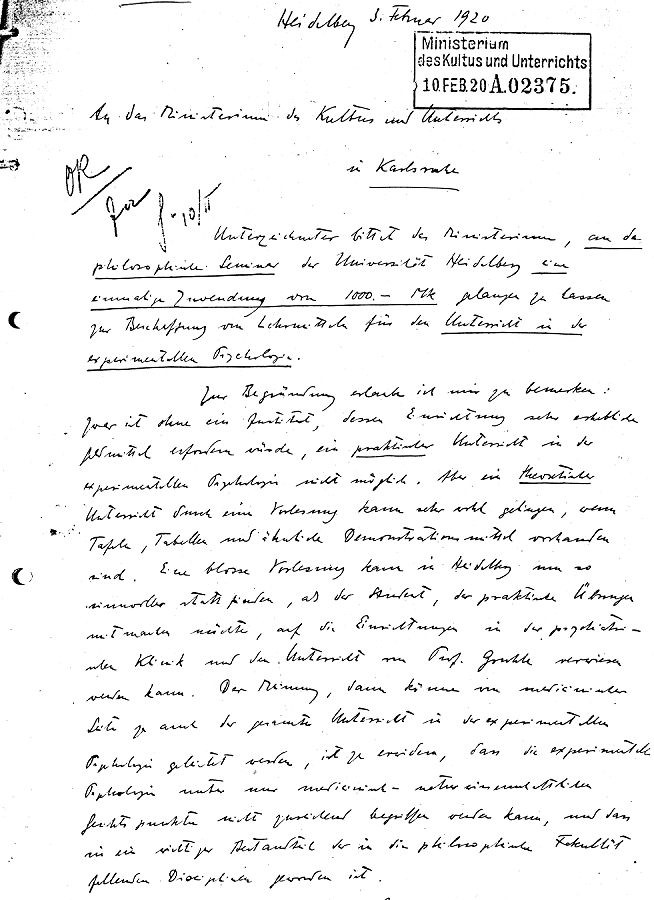 Heidelberg 3. Februar 1920
Ministerium
des Kultus und Unterrichts
10. FEB. 20 A. 02375.
An das Ministerium des Kultus und Unterrichts
in Karlsruhe
10/II
Unterzeichneter bittet das Ministerium, an das
philosophische Seminar der Universität Heidelberg eine
einmalige Zuwendung von 1000.– Mk gelangen zu lassen
zur Beschaffung von Lehrmitteln für den Unterricht in der
experimentellen Psychologie.
Zur Begründung erlaube ich mir zu bemerken:
Zwar ist ohne ein Institut, dessen Einrichtung sehr erhebliche
Geldmittel erfordern würde, ein praktischer Unterricht in der
experimentellen Psychologie nicht möglich. Aber ein theoretischer
Unterricht durch eine Vorlesung kann sehr wohl gelingen, wenn
Tafeln, Tabellen und ähnliche Demonstrationsmittel vorhanden
sind. Eine blosse Vorlesung kann in Heidelberg um so
sinnvoller stattfinden, als der Student, der praktische Übungen
mitmachen möchte, auf die Einrichtungen in der psychiatri-
schen Klinik und den Unterricht von Prof. Gruhle verwiesen
werden kann. Der Meinung, dann könne von medicinischer
Seite ja auch der gesamte Unterricht in der experimentellen
Psychologie geleitet werden, ist zu erwidern, dass die experimentelle
Psychologie unter nur medicinisch-naturwissenschaftlichen
Gesichtspunkten nicht zureichend begriffen werden kann, und dass
sie ein wichtiger Bestandteil der in die philosophische Fakultät
fallenden Disciplinen geworden ist.